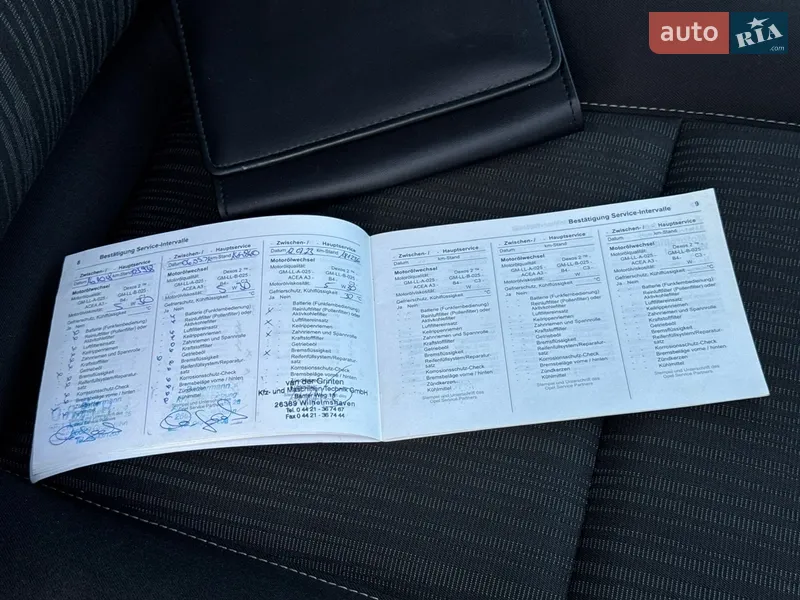 auto RIA.com
8 Bestätigung Service-Intervalle
Zwischen- / Hauptservice
Datum km-Stand
Motorölwechsel
Motorölqualität Dexos 2 ™
GM-LL-A-025 GM-LL-B-025
ACEA A3 B4 C3
Motorölviskosität: W
Gefrierschutz, Kühlflüssigkeit °C
Ja Nein
Batterie (Funkfernbedienung)
Reinluftfilter (Pollenfilter) oder
Aktivkohlefilter
Luftfiltereinsatz
Keilrippenriemen
Zahnriemen und Spannrolle
Kraftstofffilter
Getriebeöl
Bremsflüssigkeit
Reifenfüllsystem/Reparatursatz
Korrosionsschutz-Check
Bremsbeläge vorne / hinten
Zündkerzen
Kühlmittel
Zwischen- / Hauptservice
Datum km-Stand
Motorölwechsel
Motorölqualität Dexos 2 ™
GM-LL-A-025 GM-LL-B-025
ACEA A3 B4 C3
Motorölviskosität: W
Gefrierschutz, Kühlflüssigkeit °C
Ja Nein
Batterie (Funkfernbedienung)
Reinluftfilter (Pollenfilter) oder
Aktivkohlefilter
Luftfiltereinsatz
Keilrippenriemen
Zahnriemen und Spannrolle
Kraftstofffilter
Getriebeöl
Bremsflüssigkeit
Reifenfüllsystem/Reparatursatz
Korrosionsschutz-Check
Bremsbeläge vorne / hinten
Zündkerzen
Kühlmittel
Zwischen- / Hauptservice
Datum km-Stand
Motorölwechsel
Motorölqualität Dexos 2 ™
GM-LL-A-025 GM-LL-B-025
ACEA A3 B4 C3
Motorölviskosität: 5 W 30
Gefrierschutz, Kühlflüssigkeit 30 °C
Ja Nein
Batterie (Funkfernbedienung)
Reinluftfilter (Pollenfilter) oder
Aktivkohlefilter
Luftfiltereinsatz
Keilrippenriemen
Zahnriemen und Spannrolle
Kraftstofffilter
Getriebeöl
Bremsflüssigkeit
Reifenfüllsystem/Reparatursatz
Korrosionsschutz-Check
Bremsbeläge vorne / hinten
van der Grinten
Kfz- und Maschinen Technik GmbH
26389 Wilhelmshaven
Tel. 0 44 21 - 36 74 67
Fax 0 44 21 - 36 74 44
Bestätigung Service-Intervalle 9
Zwischen- / Hauptservice
Datum km-Stand
Motorölwechsel
Motorölqualität Dexos 2 ™
GM-LL-A-025 GM-LL-B-025
ACEA A3 B4 C3
Motorölviskosität: W
Gefrierschutz, Kühlflüssigkeit °C
Ja Nein
Batterie (Funkfernbedienung)
Reinluftfilter (Pollenfilter) oder
Aktivkohlefilter
Luftfiltereinsatz
Keilrippenriemen
Zahnriemen und Spannrolle
Kraftstofffilter
Getriebeöl
Bremsflüssigkeit
Reifenfüllsystem/Reparatursatz
Korrosionsschutz-Check
Bremsbeläge vorne / hinten
Zündkerzen
Kühlmittel
Stempel und Unterschrift des
Opel Service Partners
Zwischen- / Hauptservice
Datum km-Stand
Motorölwechsel
Motorölqualität Dexos 2 ™
GM-LL-A-025 GM-LL-B-025
ACEA A3 B4 C3
Motorölviskosität: W
Gefrierschutz, Kühlflüssigkeit °C
Ja Nein
Batterie (Funkfernbedienung)
Reinluftfilter (Pollenfilter) oder
Aktivkohlefilter
Luftfiltereinsatz
Keilrippenriemen
Zahnriemen und Spannrolle
Kraftstofffilter
Getriebeöl
Bremsflüssigkeit
Reifenfüllsystem/Reparatursatz
Korrosionsschutz-Check
Bremsbeläge vorne / hinten
Zündkerzen
Kühlmittel
Stempel und Unterschrift des
Opel Service Partners
Zwischen- / Hauptservice
Datum km-Stand
Motorölwechsel
Motorölqualität Dexos 2 ™
GM-LL-A-025 GM-LL-B-025
ACEA A3 B4 C3
Motorölviskosität: W
Gefrierschutz, Kühlflüssigkeit °C
Ja Nein
Batterie (Funkfernbedienung)
Reinluftfilter (Pollenfilter) oder
Aktivkohlefilter
Luftfiltereinsatz
Keilrippenriemen
Zahnriemen und Spannrolle
Kraftstofffilter
Getriebeöl
Bremsflüssigkeit
Reifenfüllsystem/Reparatursatz
Korrosionsschutz-Check
Bremsbeläge vorne / hinten
Zündkerzen
Kühlmittel
Stempel und Unterschrift des
Opel Service Partners